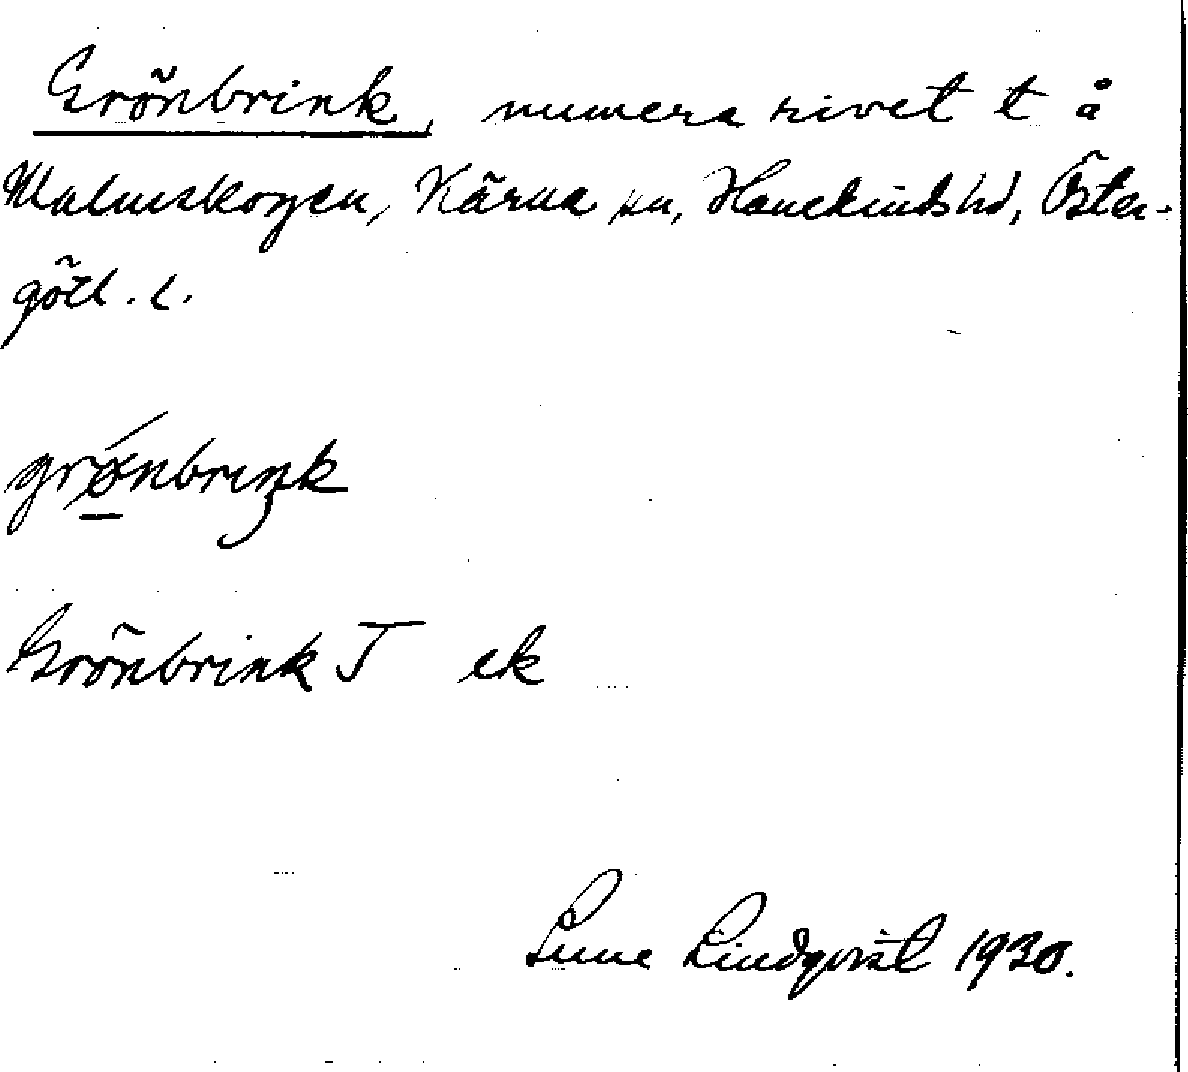 Grönbrink, numera rivet t å
Malmskogen, Kärna sn, Hanekinds hd, Öster-
götl. l.
grǿnbriŋk
Grönbrink T ek
Sune Lindqvist 1930.